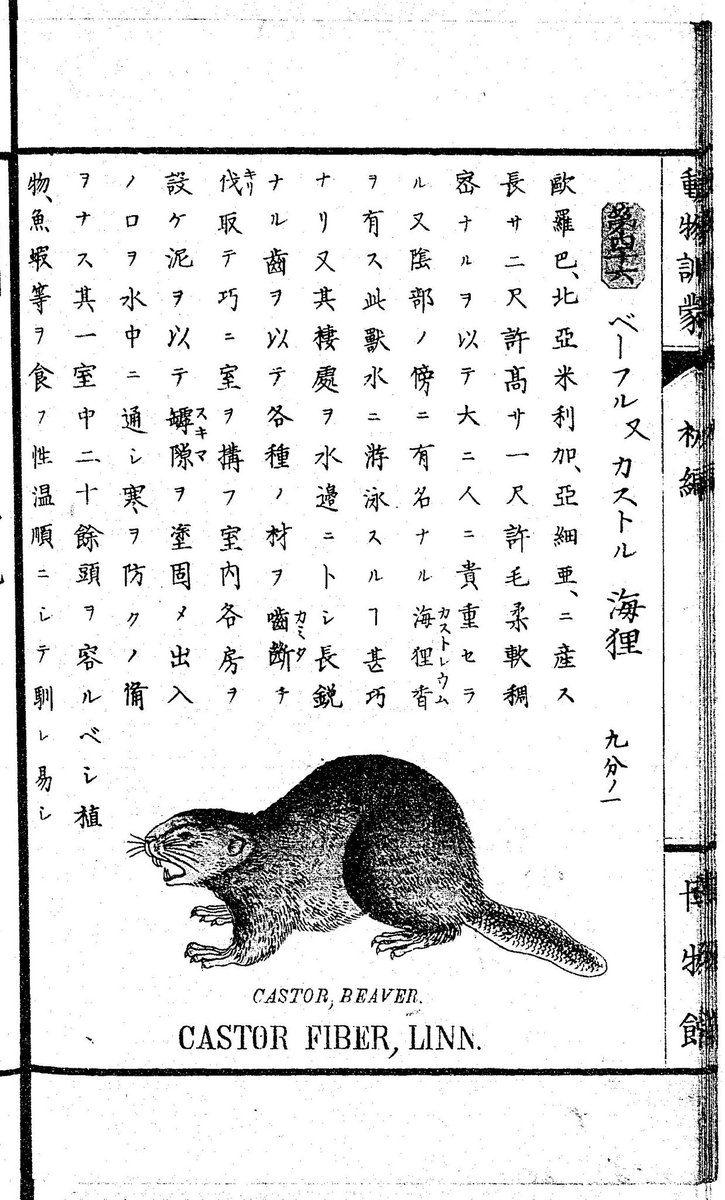 動物訓蒙 初編
博物館
第四十六
ベーフル又カストル 海狸 九分ノ一
歐羅巴、北亞米利加、亞細亜、ニ産ス
長サ二尺許髙サ一尺許毛柔軟稠
宻ナルヲ以テ大ニ人ニ貴重セラ
ル又陰部ノ傍ニ有名ナル海狸香カストレウム
ヲ有ス此獸水ニ游泳スルヿ甚巧
ナリ又其棲處ヲ水邊ニトシ長鋭
ナル齒ヲ以テ各種ノ材ヲ嚙断カミタチ
伐キリ取テ巧ニ室ヲ搆フ室内各房ヲ
設ケ泥ヲ以テ罅隙スキマヲ塗固メ出入
ノ口ヲ水中ニ通シ寒ヲ防クノ備
ヲナス其一室中二十餘頭ヲ容ルベシ植
物、魚蝦等ヲ食フ性温順ニシテ馴レ易シ
CASTOR, BEAVER.
CASTOR FIBER, LINN.